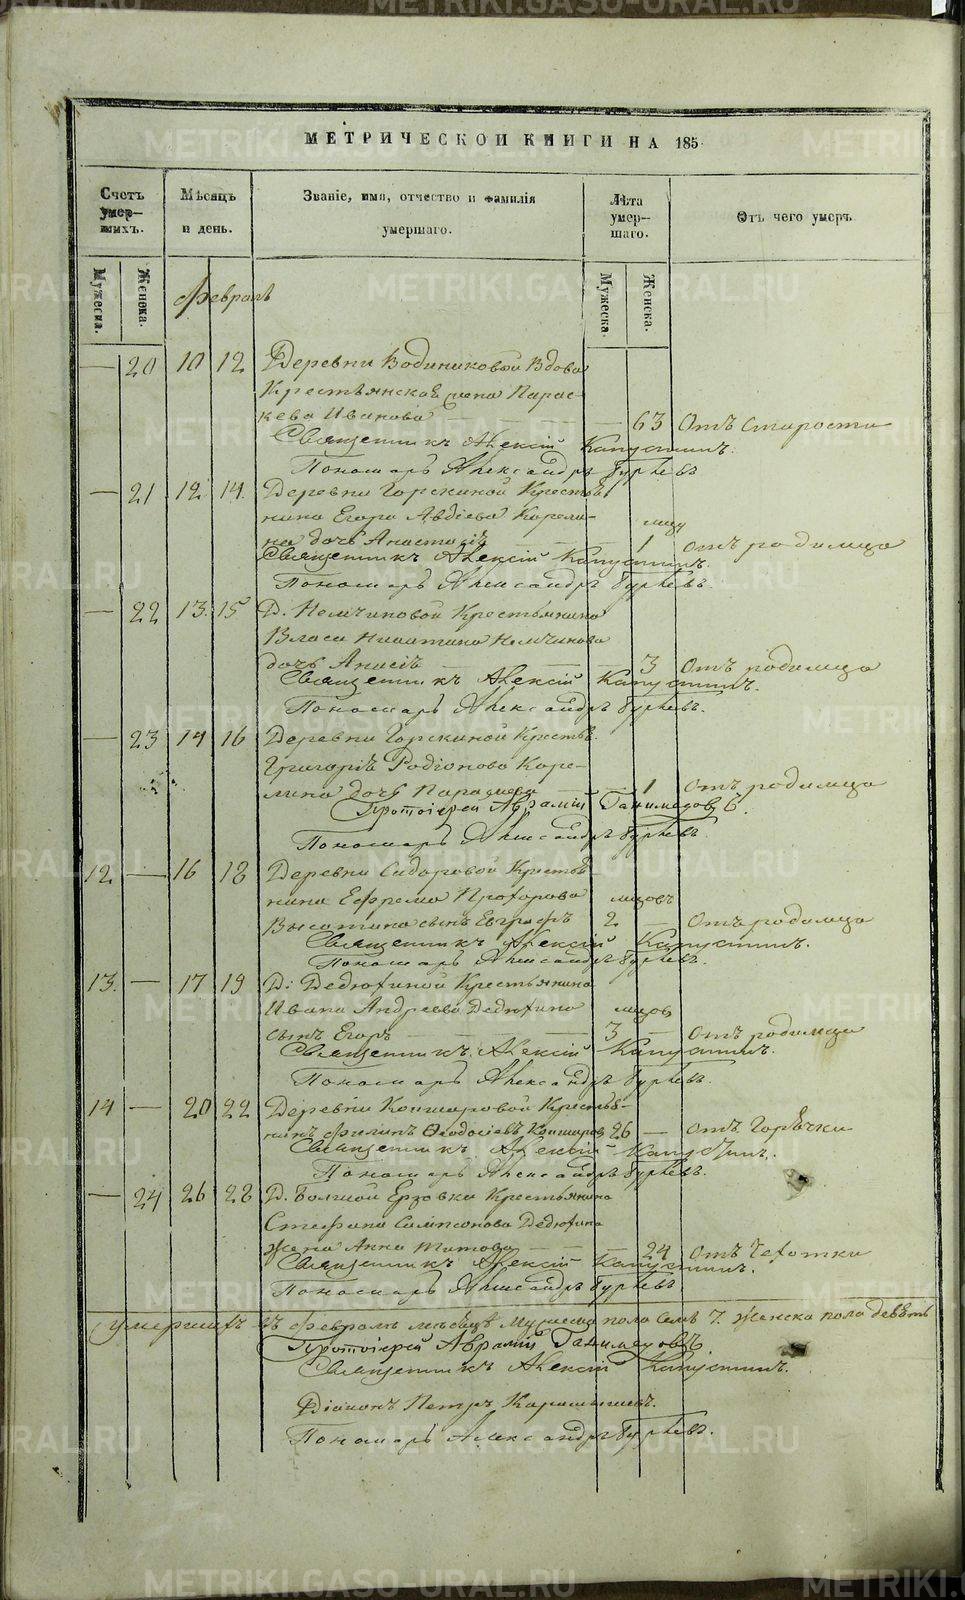 МЕТРИЧЕСКОЙ КНИГИ НА 185
Счетъ умер-шихъ.
Мѣсяцъ и день.
Званіе, имя, отчество и фамилія умершаго.
Лѣта умер-шаго.
Отъ чего умеръ.
Мужеска.
Женска.
Мужеска.
Женска.
Февраль
— 20 10 12 Деревни Водениковой Вдова
Крестьянская жена Парас-
кева Иванова — — 63 Отъ старости
Священникъ Алексій Капустинъ.
Пономарь Александръ Гурьевъ
— 21 12 14 Деревни Горскиной Крестья
нина Егора Авдіева Корели- мцъ
на дочь Анастасія — 1 отъ родимца
Священникъ Алексій Капустинъ.
Пономарь Александръ Гурьевъ.
— 22 13 15 Д. Немчиновой Крестьянина
Власа Никитина Немчинова
дочь Анисія — — 3 Отъ родимца
Священникъ Алексій Капустинъ.
Пономарь Александръ Гурьевъ.
— 23 14 16 Деревни Горскиной Крестья
Григорія Родіонова Коре-
лина дочь Параскева 1 отъ родимца
Протоіерей Аврамій Ганимедовъ.
Пономарь Александръ Гурьевъ.
12. — 16 18 Деревни Сидоровой Крестья
нина Ефрема Прохорова мцовъ
сынъ Евграфъ 2 — Отъ родимца
Священникъ Алексій Капустинъ.
Пономарь Александръ Гурьевъ.
13. — 17 19 Д. Дедюхиной Крестьянина
Ивана Андреева Дедюхина мцовъ
сынъ Егоръ — — 3 — Отъ родимца
Священникъ Алексій Капустинъ.
Пономарь Александръ Гурьевъ.
14 — 20 22 Деревни Коншаровой Крестья-
нинъ Филипъ Ѳеодосіевъ Коншаровъ 26 — отъ Горячки
Священникъ Алексій Капустинъ.
Пономарь Александръ Гурьевъ.
— 24 26 28 Д. Большой Ерзовки Крестьянина
Стефана Сампсонова Дедюхина
жена Анна Титова — — 24 Отъ Чехотки
Священникъ Алексій Капустинъ.
Пономарь Александръ Гурьевъ
Умершихъ въ Февралѣ мѣсяцѣ мужеска пола семь 7. Женска пола девять
Протоіерей Аврамій Ганимедовъ.
Священникъ Алексій Капустинъ.
Діаконъ Петръ
Пономарь Александръ Гурьевъ.
METRIKI.GASO-URAL.RU